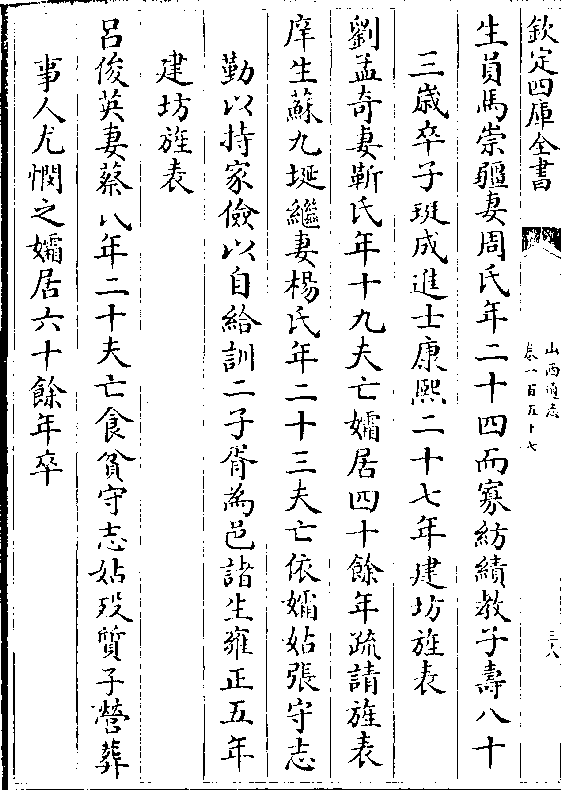 欽定四庫全書
山西通志
卷一百五十七
三八
生員馬崇驅妻周氏年二十四而寡紡績教子壽八十
三歲卒子珽成進士康熙二十七年建坊旌表
劉孟奇妻靳氏年十九夫亡孀居四十餘年疏請旌表
庠生蘇九埏繼妻楊氏年二十三夫亡依孀姑張守志
勤以持家儉以自給訓二子胥為邑諸生雍正五年
建坊旌表
呂俊英妻蔡八年二十夫亡食貧守志姑歿質子營葬
事人尤憫之孀居六十餘年卒